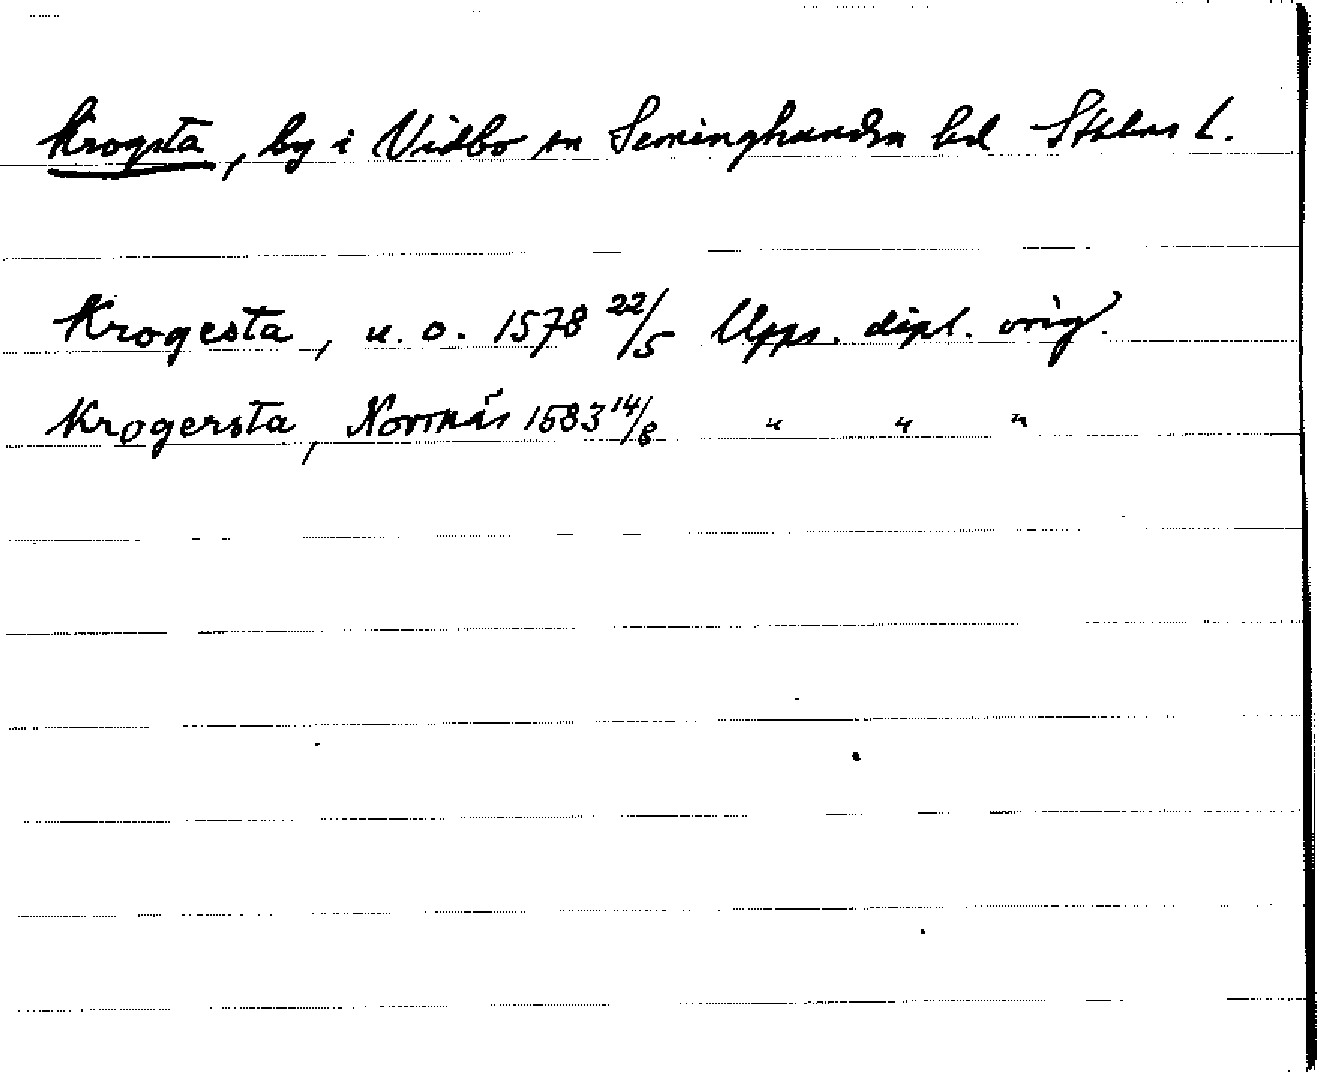 Krogsta, by i Vidbo sn Seminghundra hd Sthlms l.
Krogesta, u. o. 1578 22/5 Upps. dipl. orig.
Krogersta, Norrnäs 1583 14/8 " " "